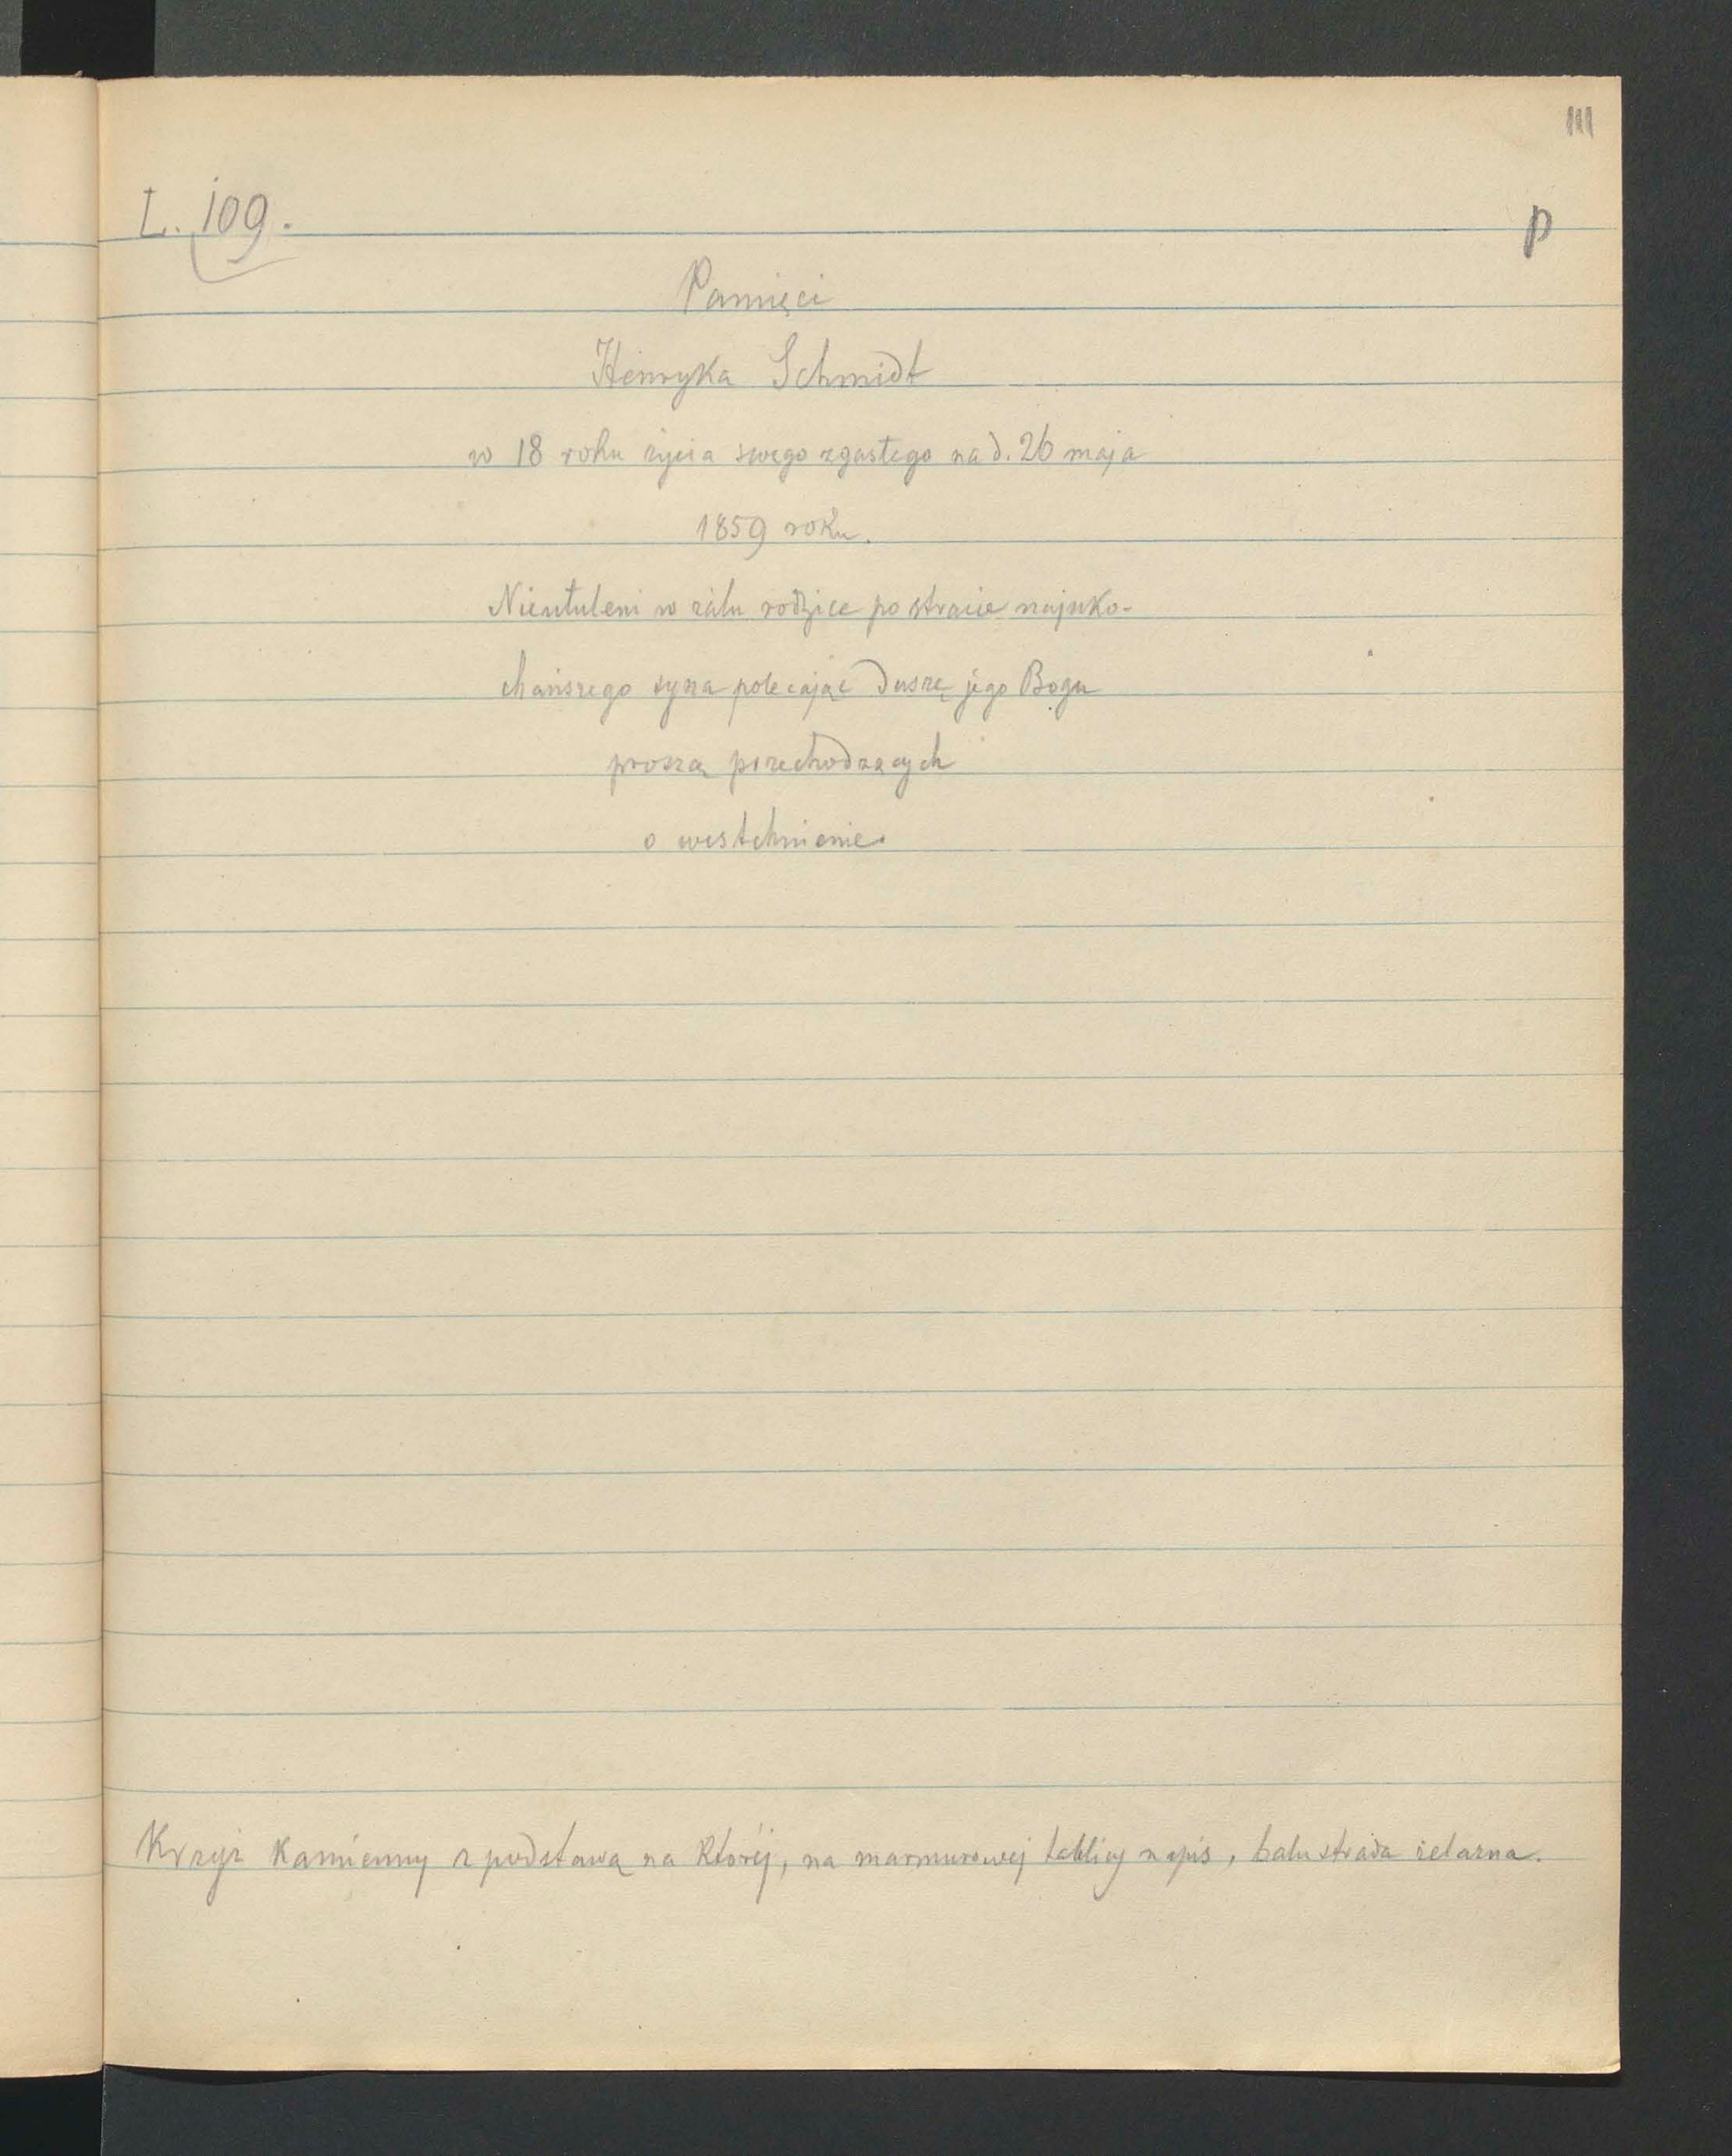 111
L. 109.
p
Pamięci
Henryka Schmidt
w 18 roku życia swego zgasłego na d. 26 maja
1859 roku.
Nieutuleni w żalu rodzice po stracie najuko-
chańszego syna polecając duszę jego Bogu
proszą przechodzących
o westchnienie.
Krzyż kamienny z podstawą na której, na marmurowej tablicy napis, balustrada żelazna.